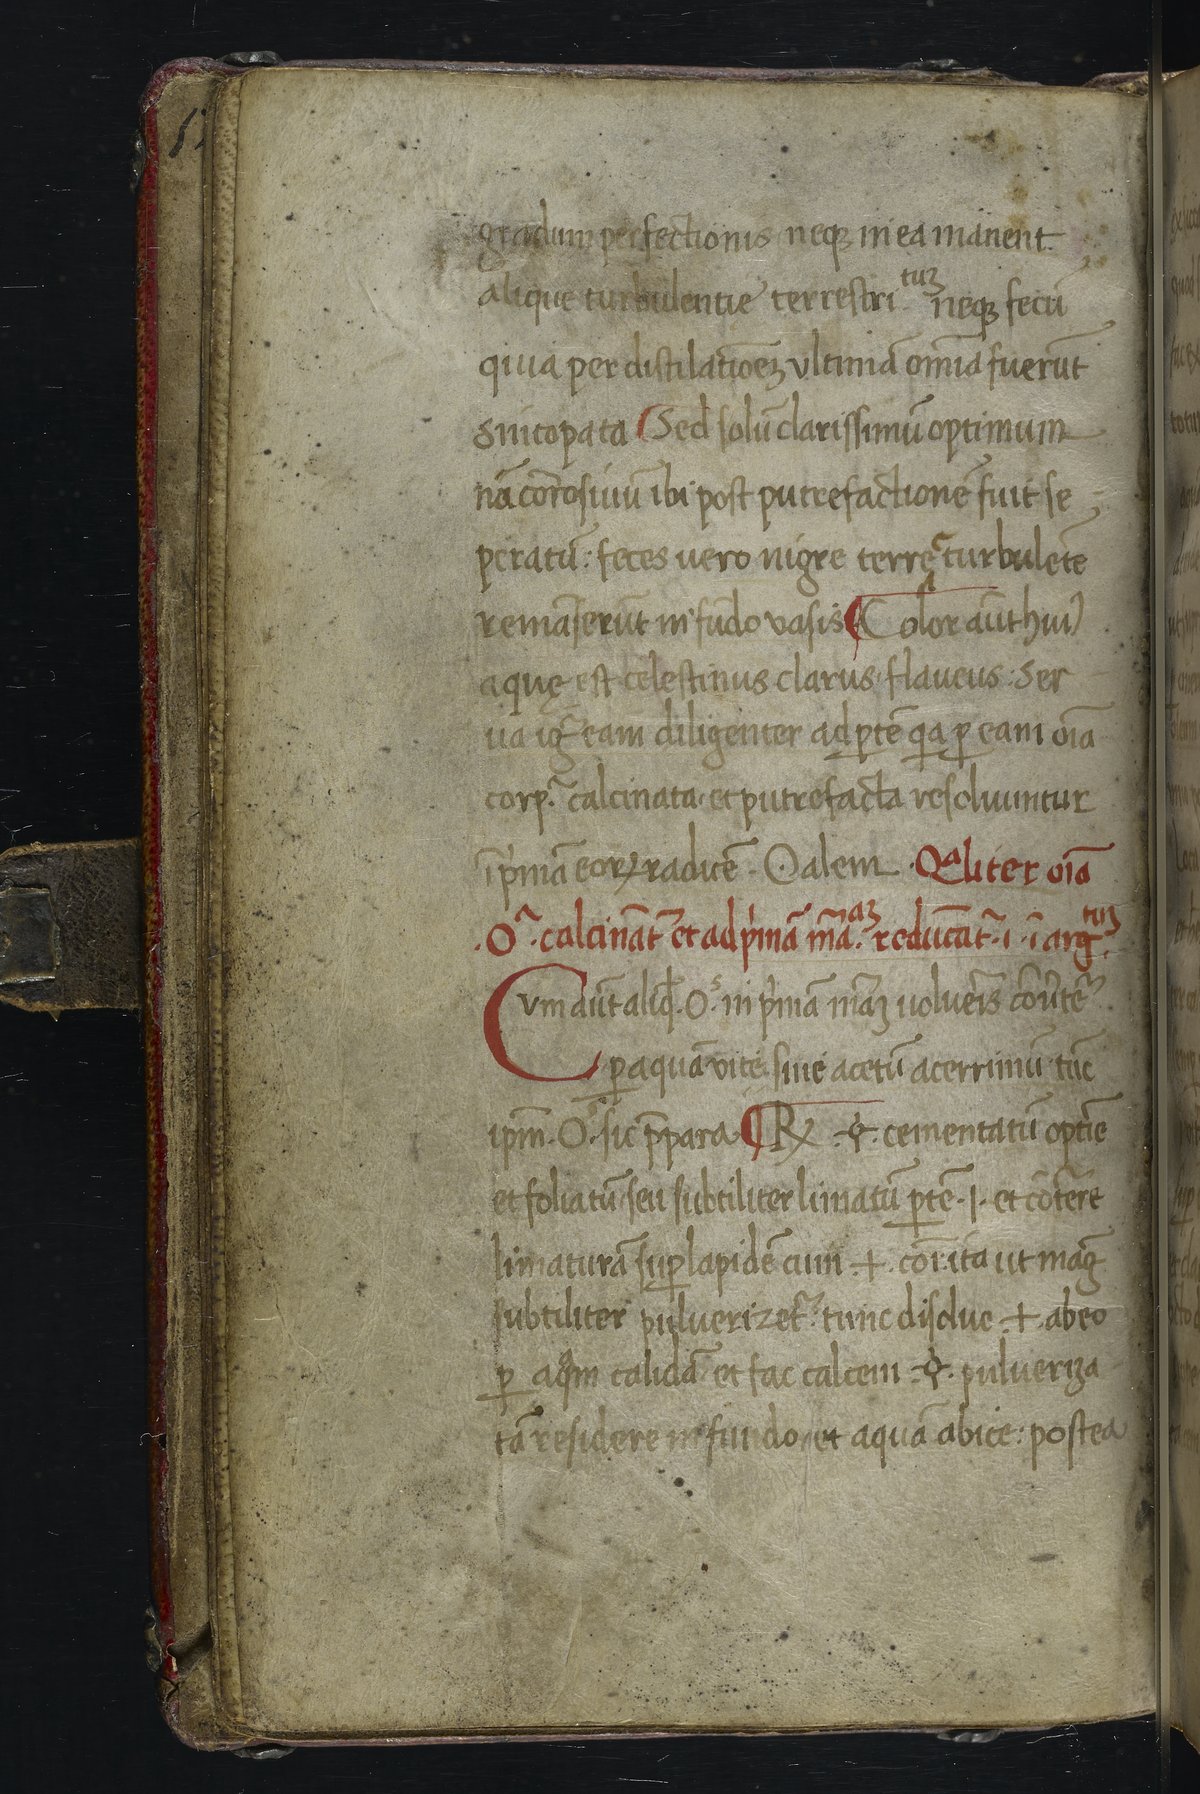 gradum perfectionis neqꝫ in ea manent
alique turbulentie terrestri tuꝫ neqꝫ fecū
quia per distilatiōeꝫ vltimā om̄ia fuerūt
sincopata Sed solū clarissimū optimum
nā corrosiuū ibi post putrefactionē fuit se
peratū: feces vero nigre terrę turbulēte
remāserūt in fūdo vasis Color aūt huiꝰ
aquę est celestinus clarus flaueus: Ser
ua igr̄ eam diligenter ad ꝑtē qa ꝑ eam oīa
corp.ᵃ calcinata et putrefacta resoluuntur
ī pͥmā eorꝝ radicē. Qalem. Qᵃliter oīa
.Oᵃ. calcinātʳ et ad pͥmā mā.ᵃꝫ reducātʳ. ī arg.tuꝫ
Cvm aūt aliqd̄. Oˢ. in pͥmā māꝫ uoluerꝭ cōuͥteʳ
ꝑ aquā vitę siue acetū acerrimū tūc
ip̄m. Oˢ. sic p̄para ℞ .☿. cementatū optīe
et foliatū seu subtiliter limatū ꝑtē .I. et cōtere
limaturā suꝑ lapidē cum .+. cōr. ita ut mag
subtiliter pulverizetʳ. tunc disolue .+. ab eo
ꝑ aqᵃm calidā et fac calcem .☿. pulueriza
tā residere in fundo et aquā abice: postea
52